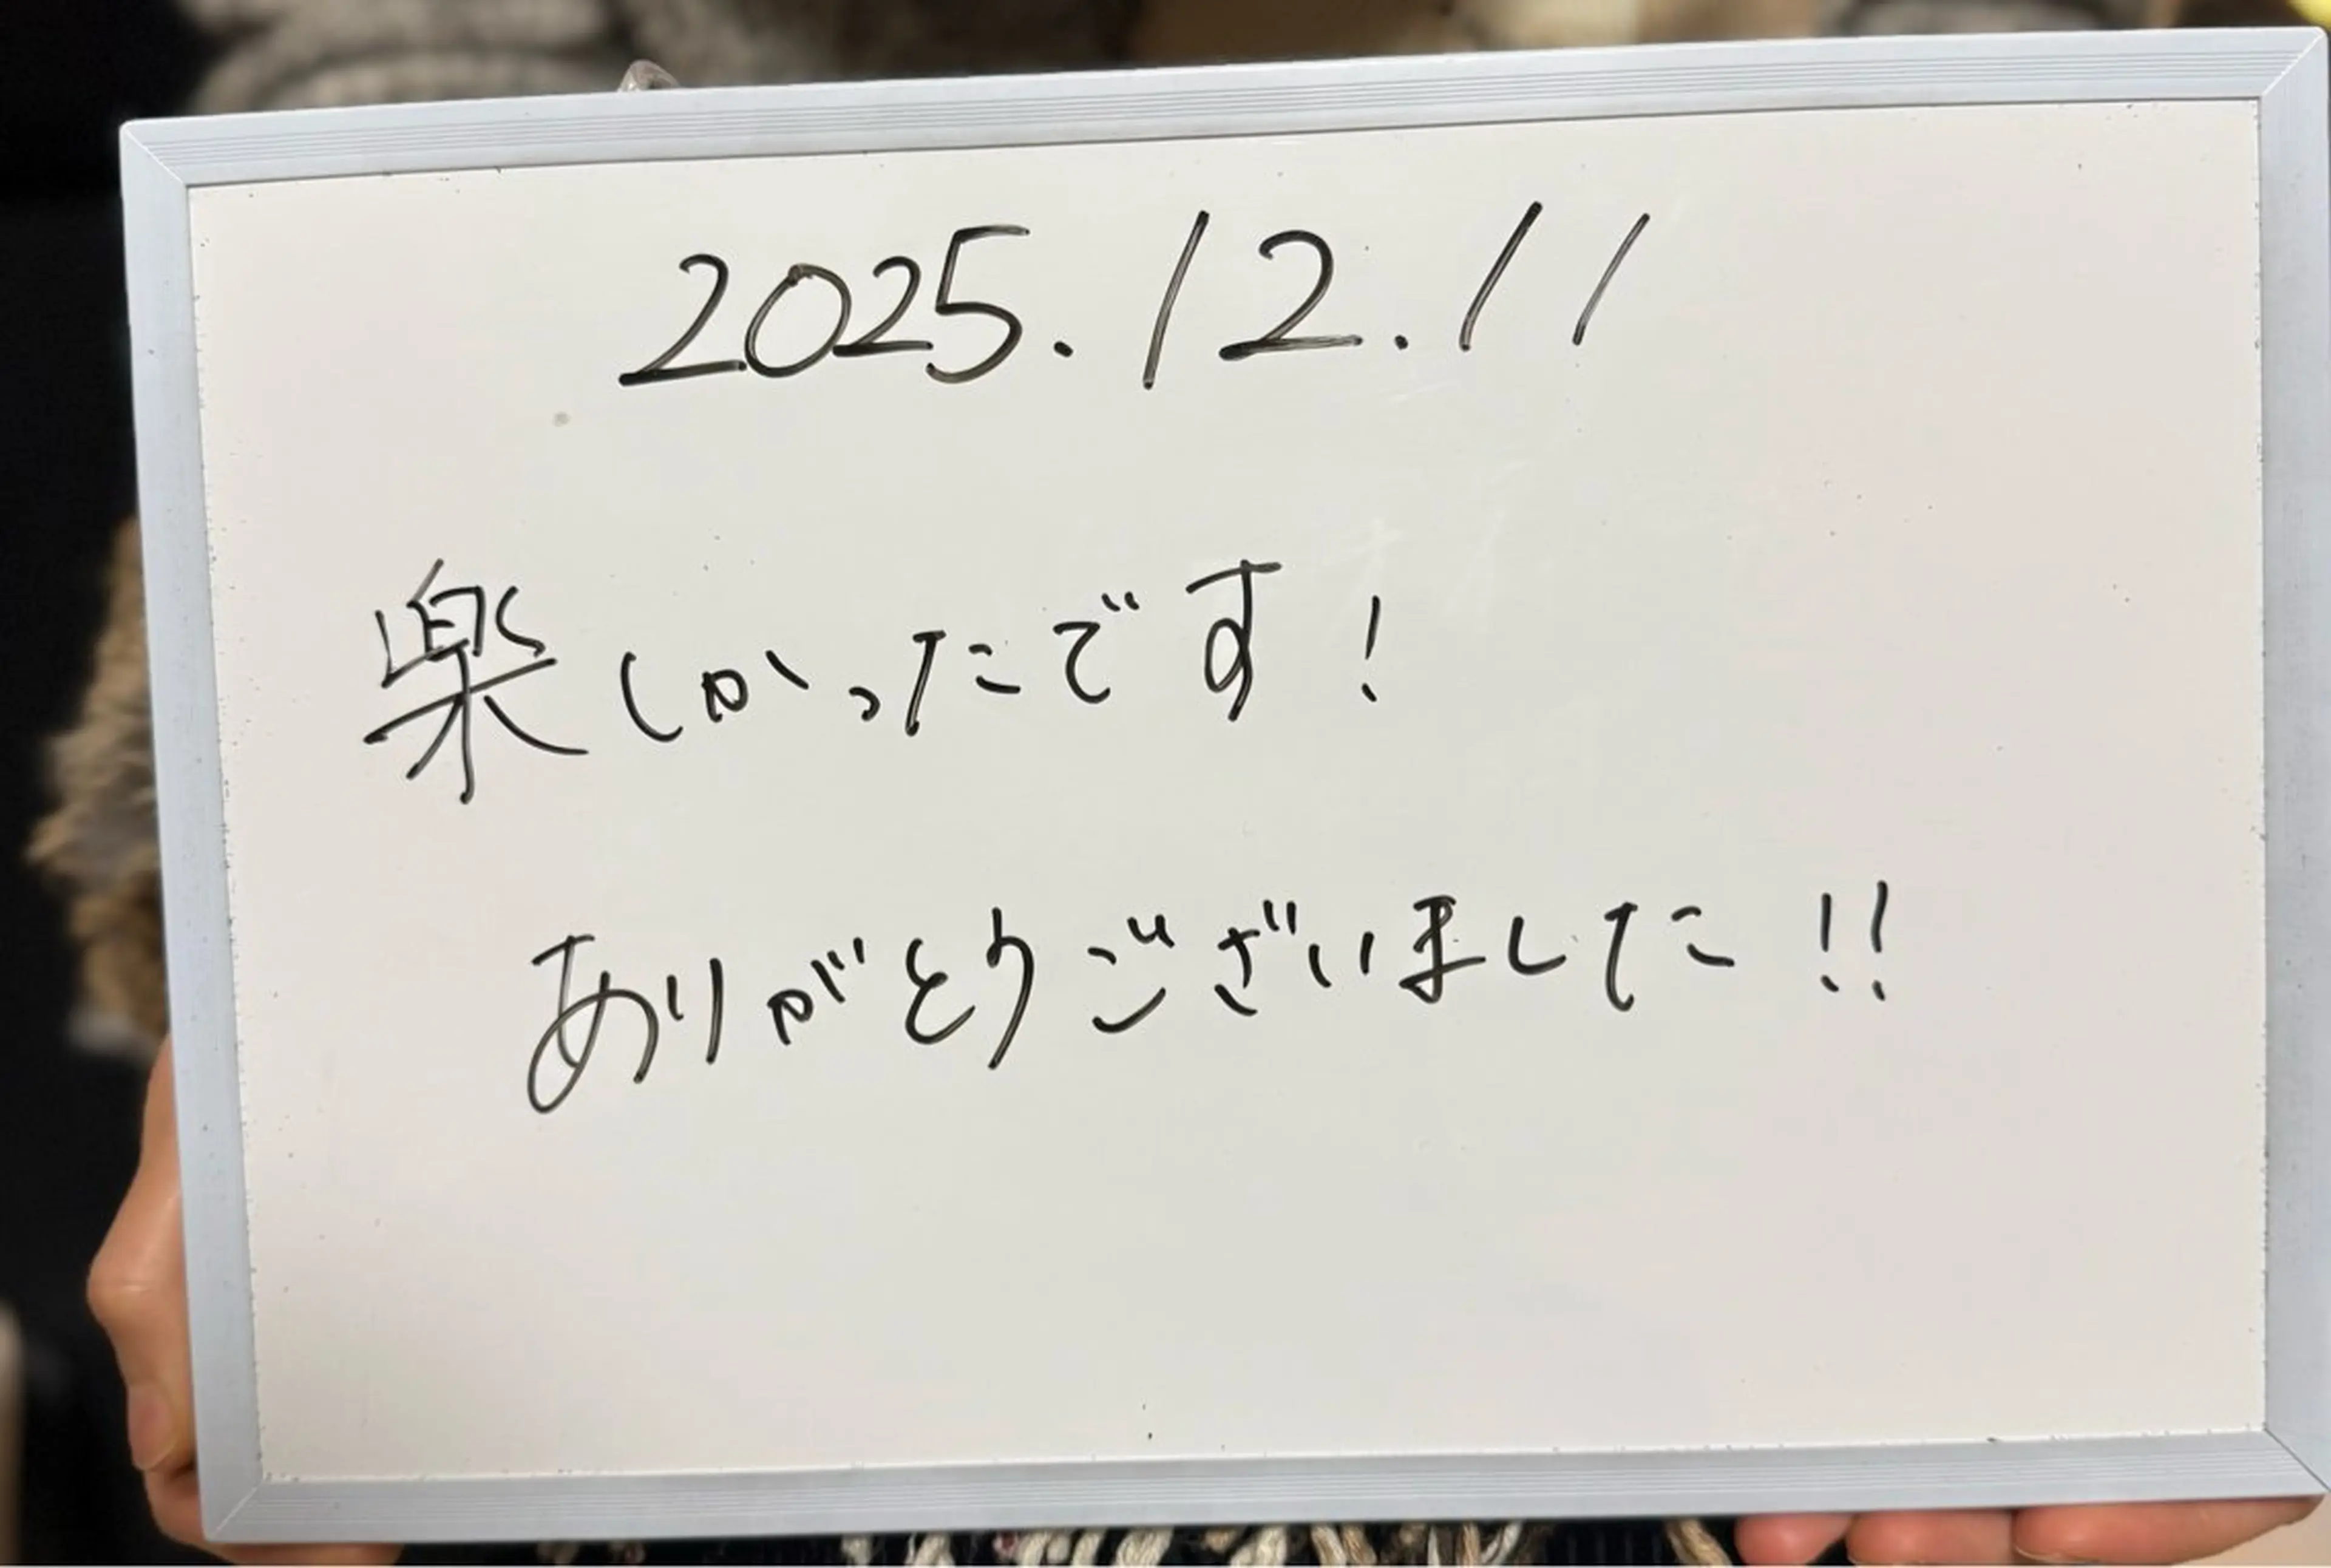 2025.12.11
楽しかったです!
ありがとうございました!!